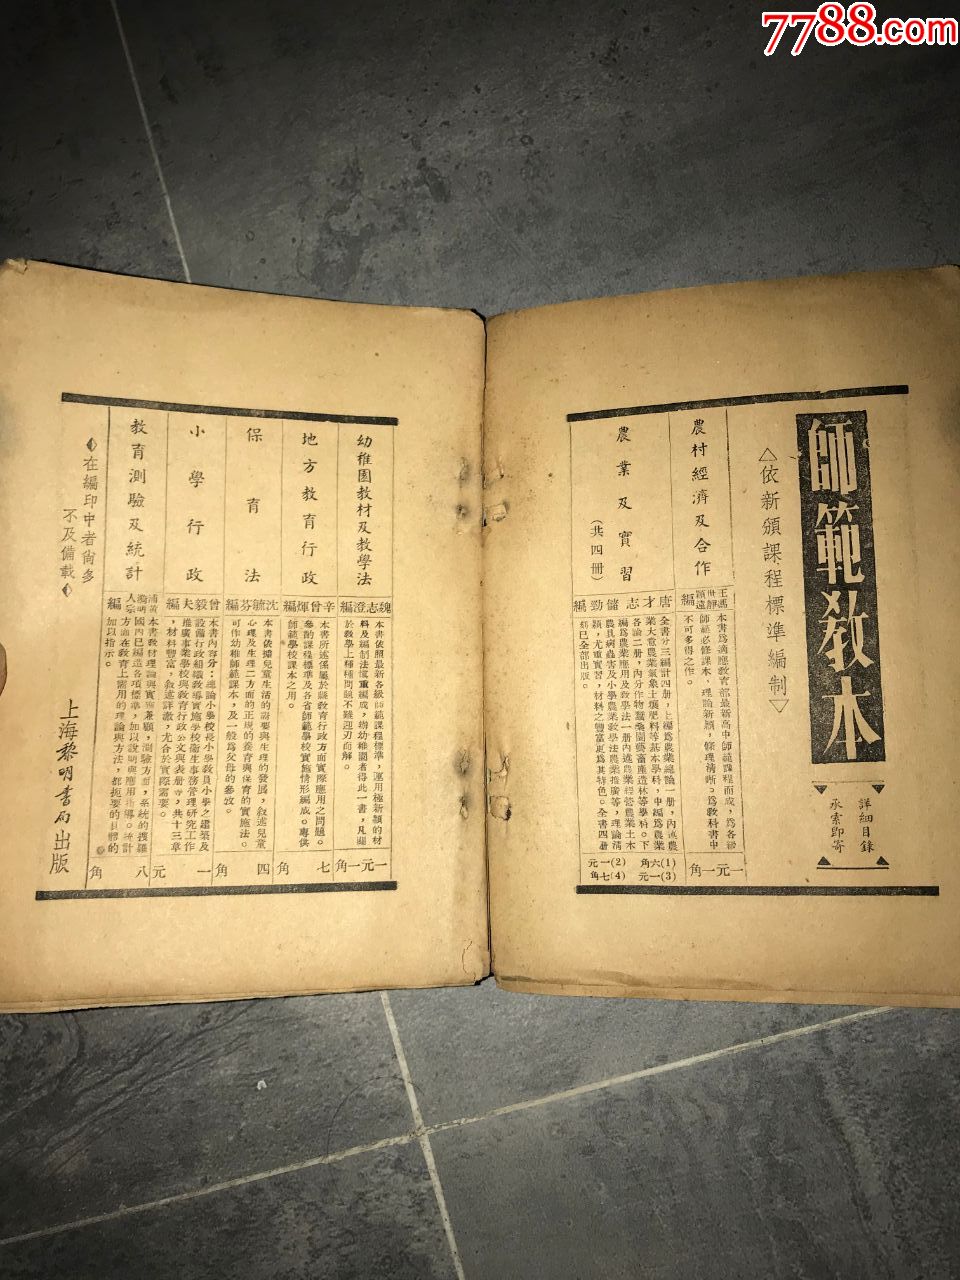 7788.com
師範教本
△依新頒課程標準編制▽
詳細目錄
承索即寄
農村經濟及合作
王世穎
馮靜遠
編
本書爲適應教育部最新高中師範課程而成，爲各級
師範必修課本，理論新穎，條理清晰。爲教科書中
不可多得之作。
一元一角
農業及實習
(共四冊)
唐志才
儲勁
編
全書分三編計四册，上編爲農業總論一册，內述農
業大意農業氣象土壤肥料等基本學科，中編爲農業
各論二册，內分作物蠶桑園藝畜產造林等學科。下
編爲農業應用及教學法一册內述農業經營農業土木
農具病蟲害及小學農業教學法農業推廣等，理論清
穎，尤重實習，材料之豐富更爲其特色。全書四册
刻已全部出版。
(1)六角
(2)一元
(3)一元
(4)七角
幼稚園教材及教學法
魏志澄編
本書依照最新各級師範課程標準，運用極新穎的材
料及編制法慎重編成，辦幼稚園者得此一書，凡關
於教學上種種問題不難迎刃而解。
一元一角
地方教育行政
辛曾煇編
本書所述係屬於縣教育行政方面實際應用之問題。
參酌課程標準及各省師範學校實施情形編成。專供
師範學校課本之用。
七角
保育法
沈毓芬編
本書依據兒童生活的需要與生理的發展，敘述兒童
心理及生理二方面的正規的養育與保育的實施法。
可作幼稚師範課本，及一般爲父母的參攷。
四角
小學行政
曾毅夫編
本書內容分：總論小學校長小學教員小學之建築及
設備行政組織教導實施學校衞生事務管理研究工作
推廣事業學校與教育行政公文與表册等，共十三章
，材料豐富，敘述詳激，尤合於實際需要。
一元
教育測驗及統計
編
本書教材理論與實施兼顧，測驗方面，系統的搜羅
國內已編造各項標準，加以說明與應用指導。統計
方面在教育上需用的理論與方法，都扼要的具體的
加以指示。
八角
在編印中者尚多
不及備載
上海黎明書局出版